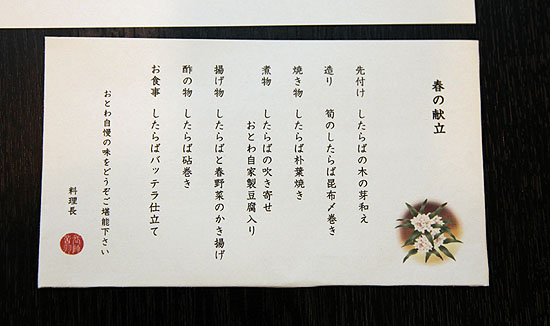 春の献立
先付け　したらばの木の芽和え
造り　筍のしたらば昆布〆巻き
焼き物　したらば朴葉焼き
煮物　したらばの吹き寄せ
おとわ自家製豆腐入り
揚げ物　したらばと春野菜のかき揚げ
酢の物　したらば砧巻き
お食事　したらばバッテラ仕立て
おとわ自慢の味をどうぞご堪能下さい
料理長